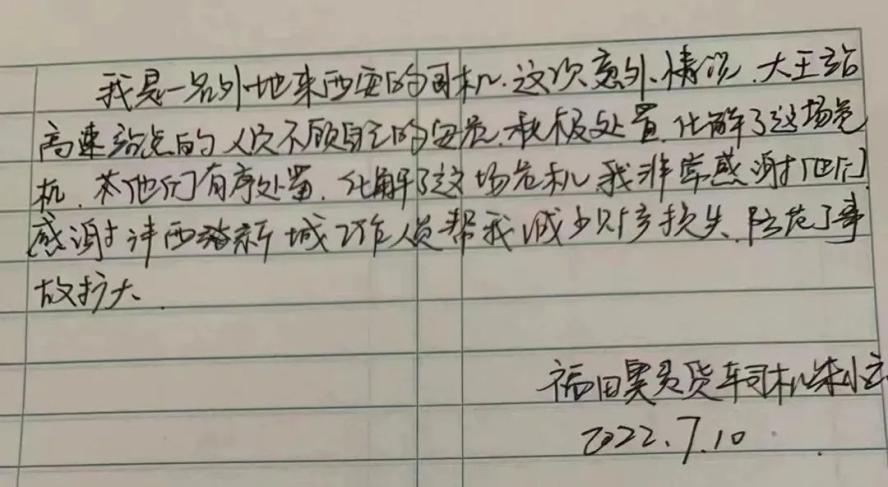 我是一名外地来西安的司机.这次意外情况,大王站
高速站点的人员不顾自己的安危,积极处置,化解了这场危
机.在他们有序处置,化解了这场危机我非常感谢他们
感谢沣西新城工作人员帮我减少财产损失,防范了事
故扩大.
福田奥灵货车司机朱小
2022.7.10